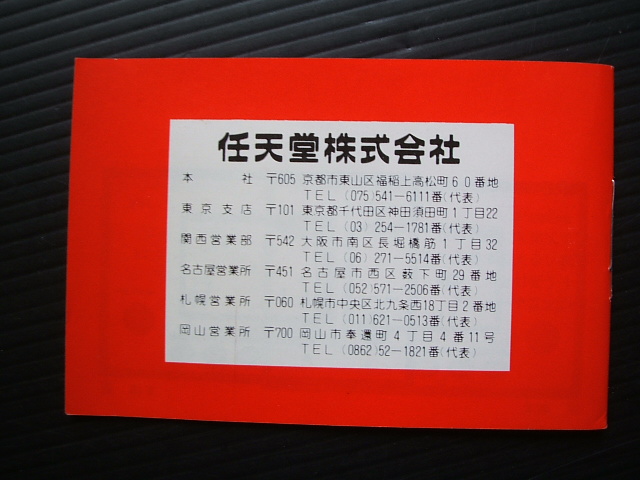 任天堂株式会社
本 社 〒605 京都市東山区福稲上高松町60番地
TEL (075)541-6111番(代表)
東京支店 〒101 東京都千代田区神田須田町1丁目22
TEL (03) 254-1781番(代表)
関西営業部 〒542 大阪市南区長堀橋筋1丁目32
TEL (06) 271-5514番(代表)
名古屋営業所 〒451 名古屋市西区薮下町29番地
TEL (052)571-2506番(代表)
札幌営業所 〒060 札幌市中央区北九条西18丁目2番地
TEL (011)621-0513番(代表)
岡山営業所 〒700 岡山市奉還町4丁目4番11号
TEL (0862)52-1821番(代表)